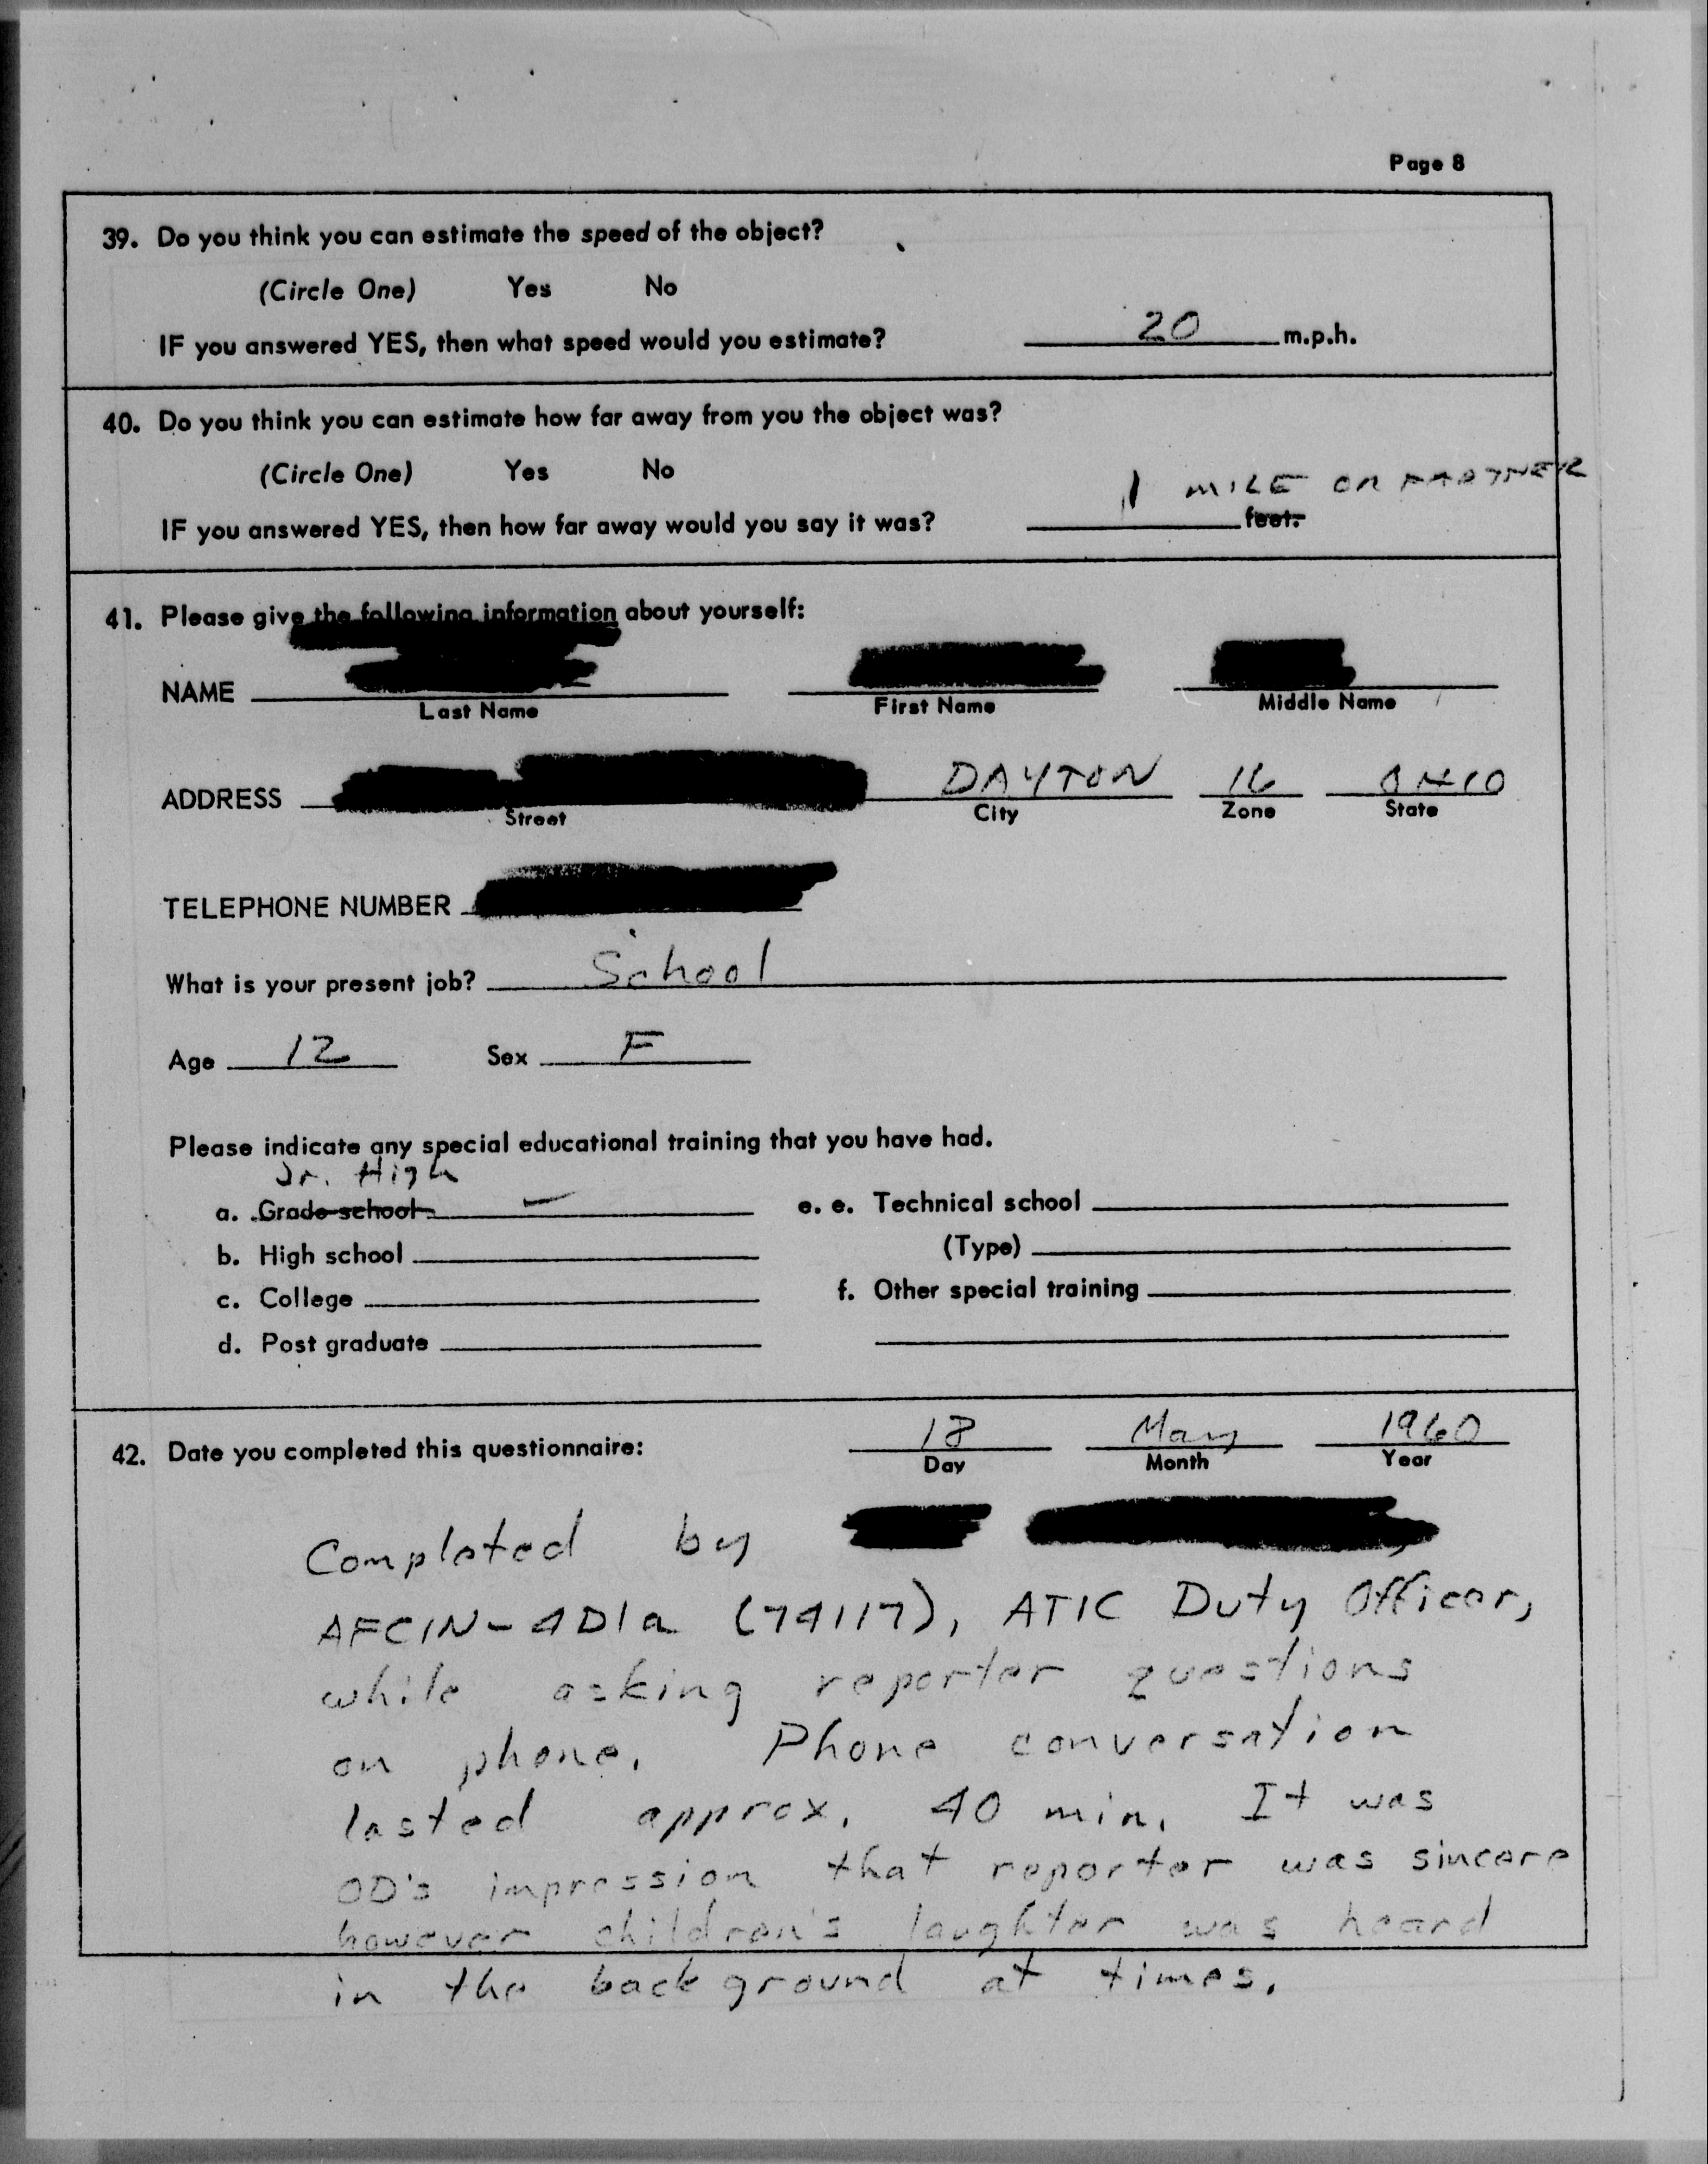 Page 8
39. Do you think you can estimate the speed of the object?
(Circle One) Yes No
IF you answered YES, then what speed would you estimate? 20 m.p.h.
40. Do you think you can estimate how far away from you the object was?
(Circle One) Yes No
1 MILE OR FARTHER
IF you answered YES, then how far away would you say it was? feet.
41. Please give the following information about yourself:
NAME
Last Name First Name Middle Name
ADDRESS DAYTON 16 OHIO
Street City Zone State
TELEPHONE NUMBER
What is your present job? School
Age 12 Sex F
Please indicate any special educational training that you have had.
Jr. High
a. Grade school e. e. Technical school
b. High school (Type)
c. College f. Other special training
d. Post graduate
42. Date you completed this questionnaire: 18 May 1960
Day Month Year
Completed by
AFCIN-4D1a (74117), ATIC Duty Officer,
while asking reporter questions
on phone. Phone conversation
lasted approx. 40 min. It was
OD's impression that reporter was sincere
however children's laughter was heard
in the background at times.